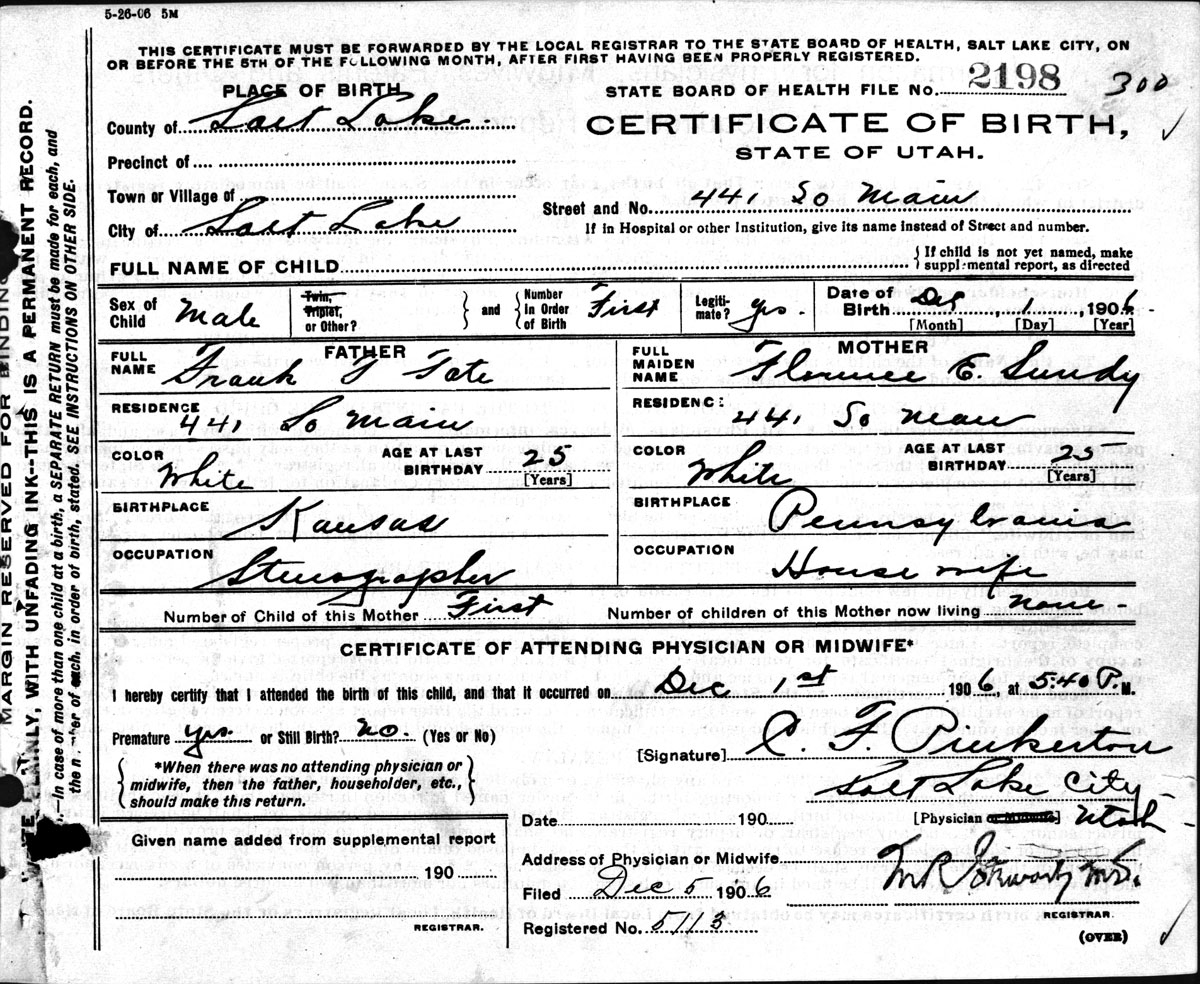 5-26-06 5M
THIS CERTIFICATE MUST BE FORWARDED BY THE LOCAL REGISTRAR TO THE STATE BOARD OF HEALTH, SALT LAKE CITY, ON
OR BEFORE THE 5TH OF THE FOLLOWING MONTH, AFTER FIRST HAVING BEEN PROPERLY REGISTERED.
PLACE OF BIRTH
STATE BOARD OF HEALTH FILE No. 2198 300
County of Salt Lake
CERTIFICATE OF BIRTH,
STATE OF UTAH.
Precinct of
Town or Village of
Street and No. 441 So Main
City of Salt Lake
If in Hospital or other Institution, give its name instead of Street and number.
FULL NAME OF CHILD
If child is not yet named, make
supplemental report, as directed
Sex of Child Male
Twin, Triplet, or Other? and Number in Order of Birth First
Legiti-mate? yes.
Date of Birth Dec 1, 1906
[Month] [Day] [Year]
FATHER
FULL NAME Frank T Tate
RESIDENCE 441 So Main
COLOR White AGE AT LAST BIRTHDAY 25 [Years]
BIRTHPLACE Kansas
OCCUPATION Stenographer
MOTHER
FULL MAIDEN NAME Florence E. Sundy
RESIDENCE: 441 So Main
COLOR White AGE AT LAST BIRTHDAY 25 [Years]
BIRTHPLACE Pennsylvania
OCCUPATION House wife
Number of Child of this Mother First Number of children of this Mother now living none
CERTIFICATE OF ATTENDING PHYSICIAN OR MIDWIFE*
I hereby certify that I attended the birth of this child, and that it occurred on Dec 1st 1906, at 5:40 P. M.
Premature yes or Still Birth? no. (Yes or No)
[Signature] C. F. Pinkerton
*When there was no attending physician or
midwife, then the father, householder, etc.,
should make this return.
Salt Lake City
[Physician or Midwife] Utah
Date 190
Given name added from supplemental report
190
REGISTRAR.
Address of Physician or Midwife
Filed Dec 5 1906
M.D.
REGISTRAR.
Registered No. 5113
(OVER)
MARGIN RESERVED FOR BINDING
WRITE PLAINLY, WITH UNFADING INK--THIS IS A PERMANENT RECORD.
—In case of more than one child at a birth, a SEPARATE RETURN must be made for each, and
the number of each, in order of birth, stated. SEE INSTRUCTIONS ON OTHER SIDE.